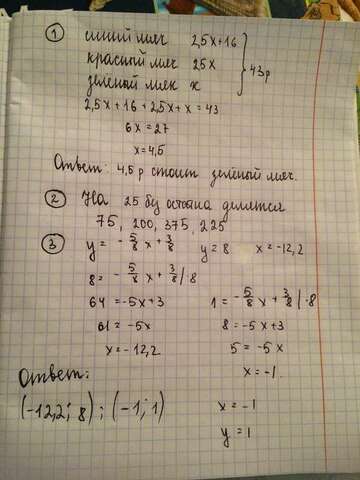 1 синий мяч 2,5x+16
красный мяч 25x } 43р
зелёной мяк x
2,5x+16+2,5x+x=43
6x=27
x=4,5
Ответ: 4,5 р стоит зелёный мяч.
2 На 25 без остатка делятся
75, 200, 375, 225
3 y = - 5/8 x + 3/8 y=8 x=-12,2
8= - 5/8 x + 3/8 |·8
64 =-5x+3
61 =-5x
x=-12,2
1= - 5/8 x + 3/8 |·8
8=-5x+3
5=-5x
x=-1.
Ответ:
(-12,2; 8); (-1; 1)
x=-1
y=1